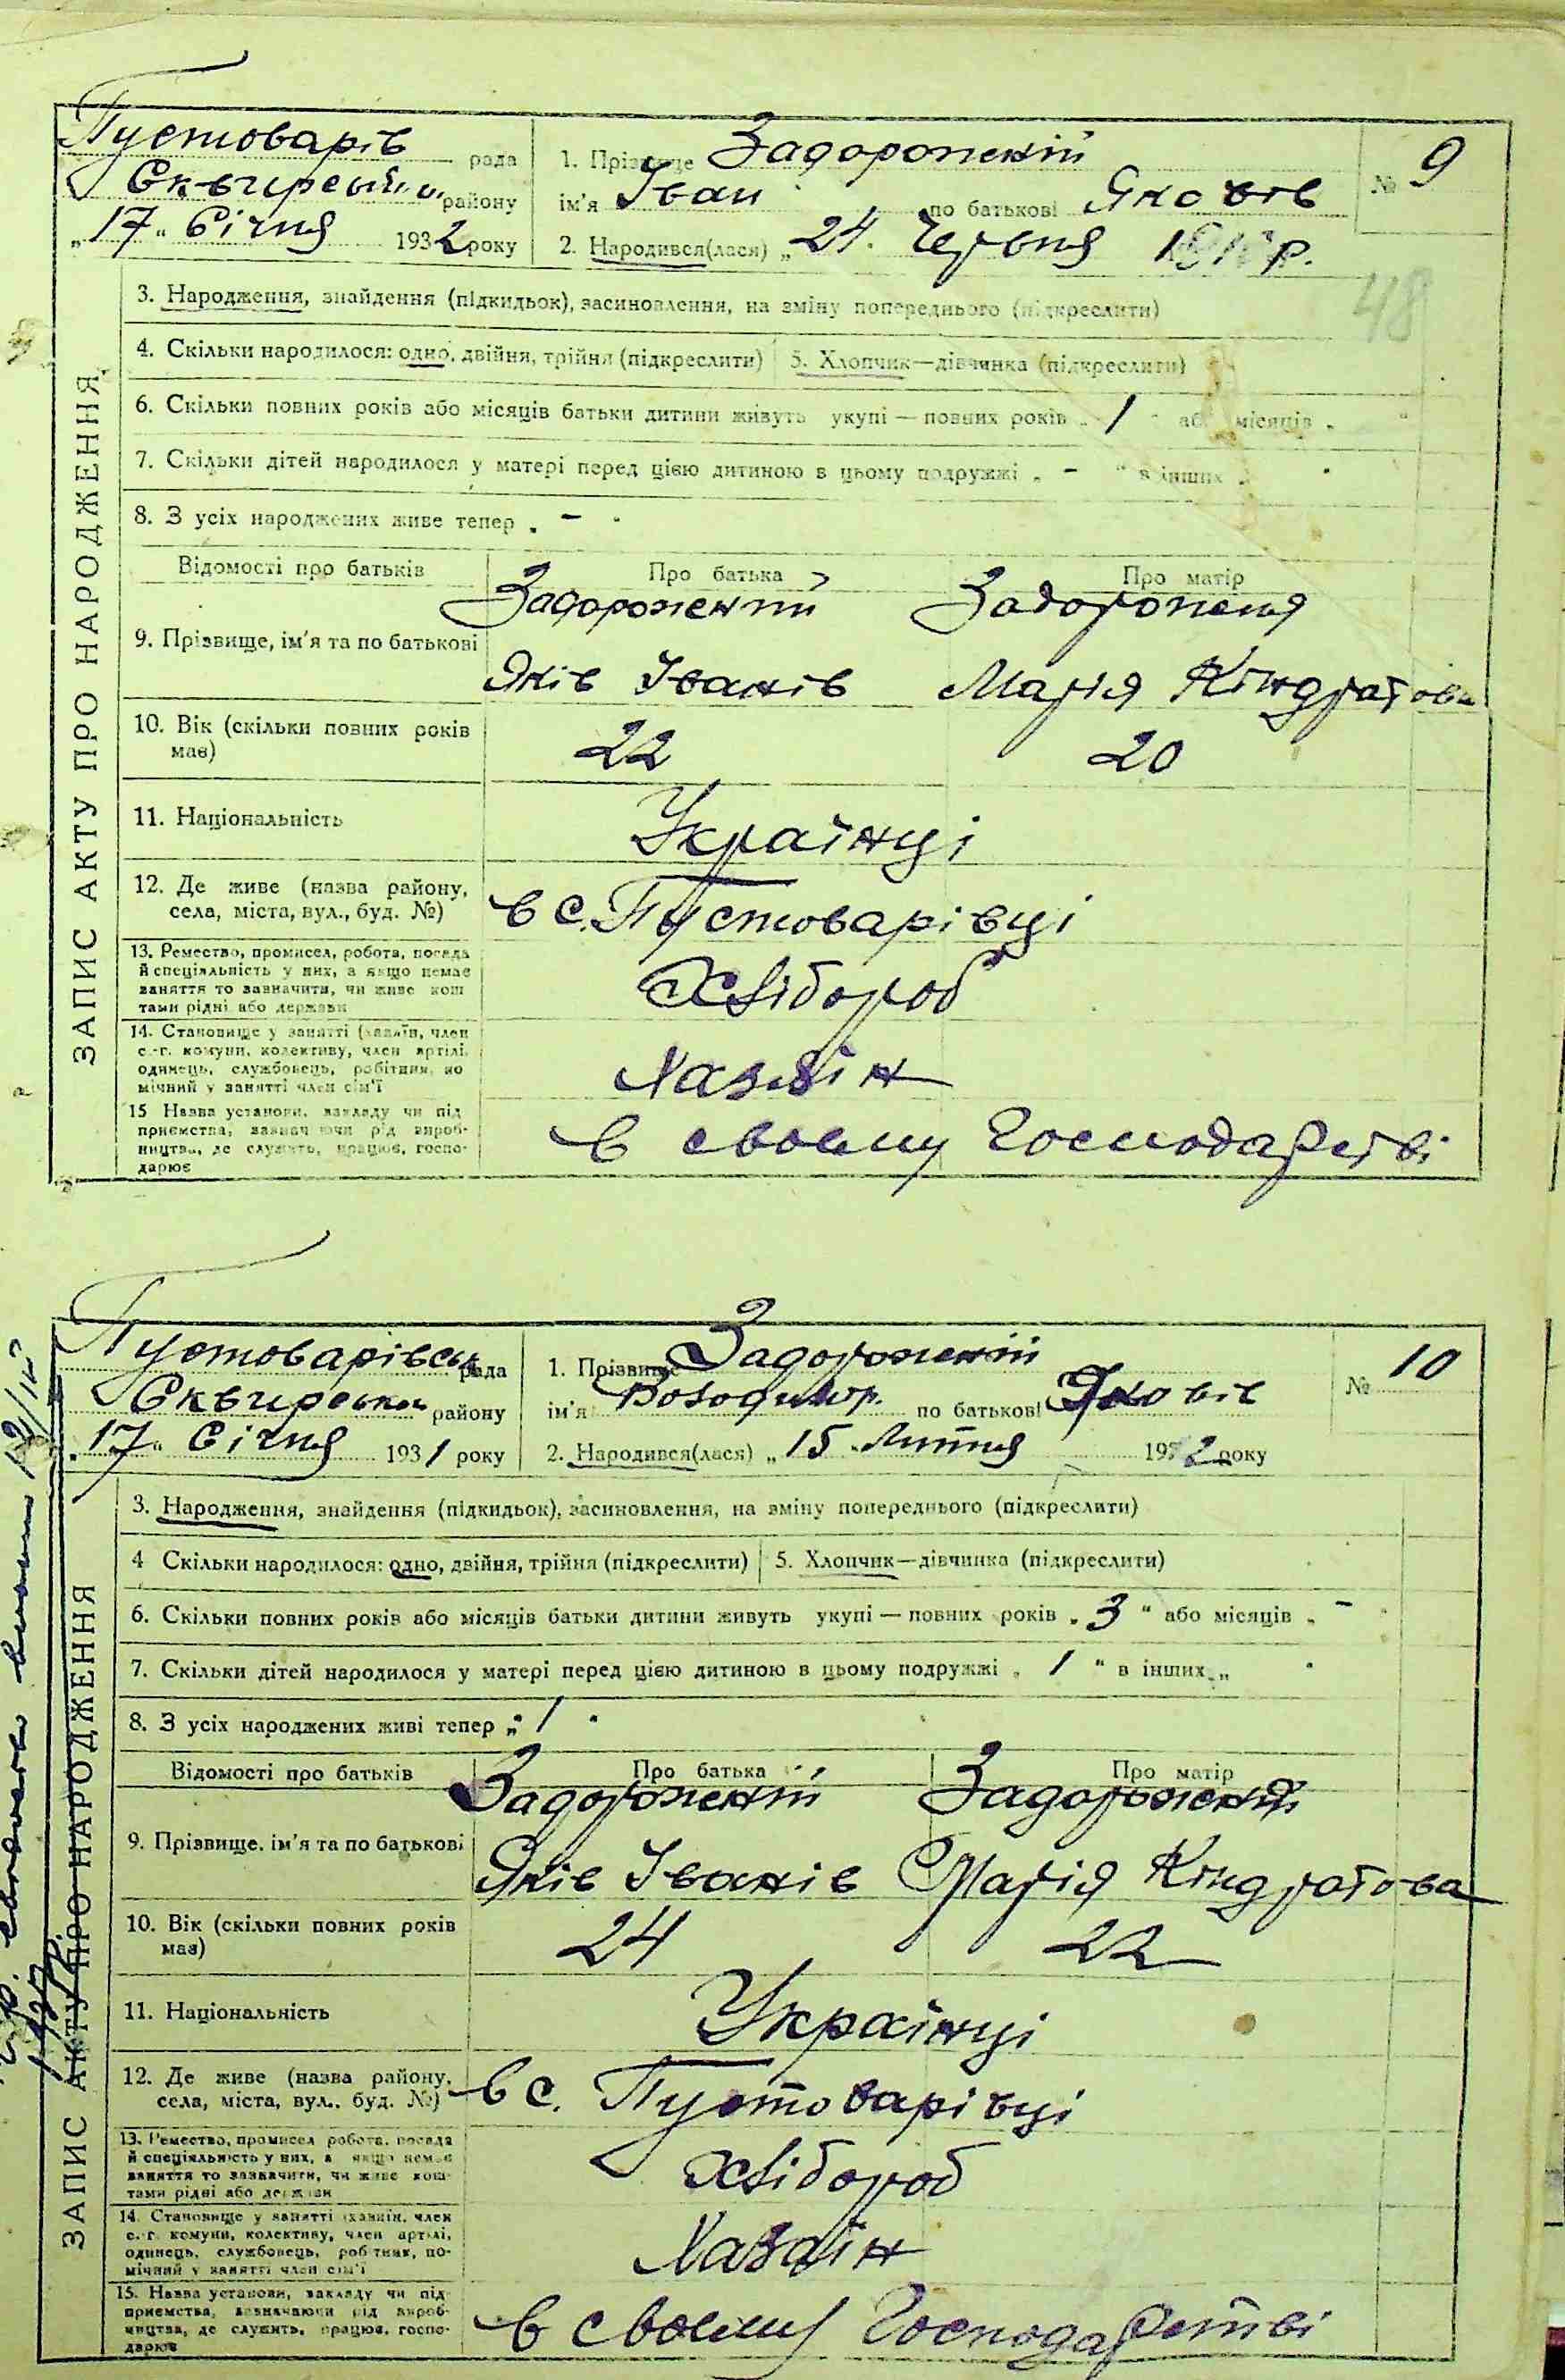 Пустоварів рада
Сквирськ. району
„17“ Січня 1932 року
1. Прізвище Задорожній
ім'я Іван по батькові Яковів
2. Народився(лася) „24. Червня р.
№ 9
48
ЗАПИС АКТУ ПРО НАРОДЖЕННЯ
3. Народження, знайдення (підкидьок), засиновлення, на зміну попереднього (підкреслити)
4. Скільки народилося: одно, двійня, трійня (підкреслити) 5. Хлопчик—дівчинка (підкреслити)
6. Скільки повних років або місяців батьки дитини живуть укупі — повних років „ 1 “ або місяців „ “
7. Скільки дітей народилося у матері перед цією дитиною в цьому подружжі „ - “ в інших „ “
8. З усіх народжених живе тепер „ - “
Відомості про батьків Про батька Про матір
Задорожний Задорожня
9. Прізвище, ім'я та по батькові
Яків Іванів Марія Кіндратова
10. Вік (скільки повних років має) 22 20
11. Національність Українці
12. Де живе (назва району, села, міста, вул., буд. №) в с. Пустоварівці
13. Ремество, промисел, робота, посада
й спеціяльність у них, а якщо немає
заняття то зазначити, чи живе кош
тами рідні або держави
Хлібороб
14. Становище у занятті (хазяїн, член
с.-г. комуни, колективу, член артілі,
одинець, службовець, робітник, по
мічний у занятті член сім'ї
Хазяїн
15 Назва установи, закладу чи під
приємства, зазнач ючи рід вироб-
ництва, де служить, працює, госпо-
дарює
в своєму Господарстві
Пустоварівськ рада
Сквирськ. району
„17“ Січня 1931 року
1. Прізвище Задорожній
ім'я Володимр. по батькові Яковів
2. Народився(лася) „15 Липня 1932 року
№ 10
ЗАПИС АКТУ ПРО НАРОДЖЕННЯ
3. Народження, знайдення (підкидьок), засиновлення, на зміну попереднього (підкреслити)
4 Скільки народилося: одно, двійня, трійня (підкреслити) 5. Хлопчик—дівчинка (підкреслити)
6. Скільки повних років або місяців батьки дитини живуть укупі — повних років „ 3 “ або місяців „ - “
7. Скільки дітей народилося у матері перед цією дитиною в цьому подружжі „ 1 “ в інших „ “
8. З усіх народжених живі тепер „ 1 “
Відомості про батьків Про батька Про матір
Задорожній Задорожній
9. Прізвище, ім'я та по батькові
Яків Іванів Марія Кіндратова
10. Вік (скільки повних років має) 24 22
11. Національність Українці
12. Де живе (назва району, села, міста, вул., буд. №) в с. Пустоварівці
13. Ремество, промисел робота, посада
й спеціяльність у них, а якщо немає
заняття то зазначити, чи живе кош-
тами рідні або держави
Хлібороб
14. Становище у занятті (хазяїн, член
с.-г. комуни, колективу, член артілі,
одинець, службовець, робітник, по-
мічний у занятті член сім'ї
Хазяїн
15. Назва установи, закладу чи під
приємства, зазначаючи рід вироб-
ництва, де служить, працює, госпо-
дарює
в своєму Господарстві